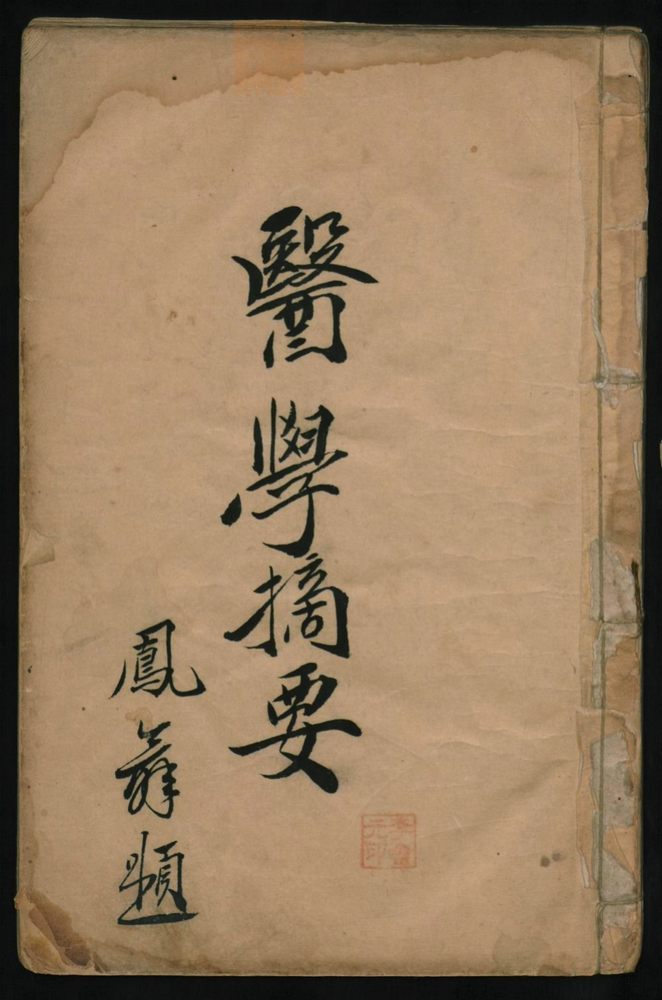 醫學摘要
鳳舞題